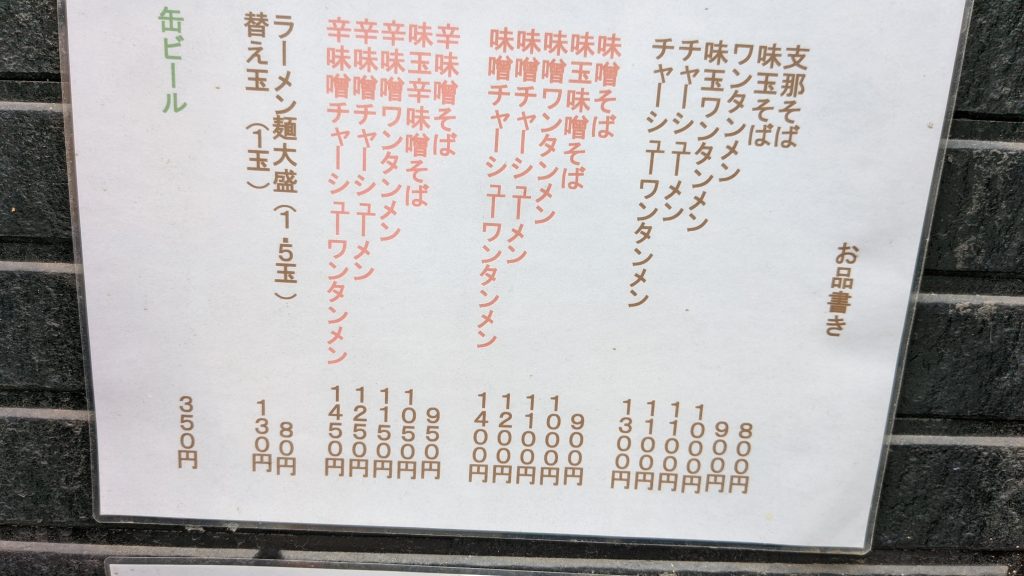 お品書き
支那そば　８００円
味玉そば　９００円
ワンタンメン　１０００円
味玉ワンタンメン　１１００円
チャーシューメン　１１００円
チャーシューワンタンメン　１３００円
味噌そば　９００円
味玉味噌そば　１０００円
味噌ワンタンメン　１１００円
味噌チャーシューメン　１２００円
味噌チャーシューワンタンメン　１４００円
辛味噌そば　９５０円
味玉辛味噌そば　１０５０円
辛味噌ワンタンメン　１１５０円
辛味噌チャーシューメン　１２５０円
辛味噌チャーシューワンタンメン　１４５０円
ラーメン麺大盛（１．５玉）　８０円
替え玉（１玉）　１３０円
缶ビール　３５０円